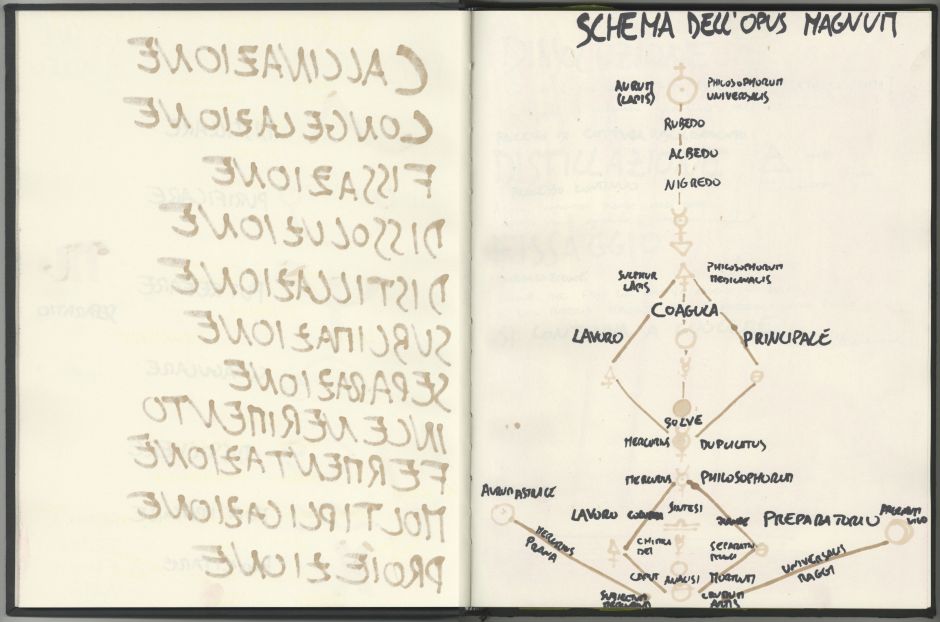 CALCINAZIONE
CONGELAZIONE
FISSAZIONE
DISSOLUZIONE
DISTILLAZIONE
SUBLIMAZIONE
SEPARAZIONE
INCENERIMENTO
FERMENTAZIONE
MOLTIPLICAZIONE
PROIEZIONE
SCHEMA DELL'OPUS MAGNUM
AURUM PHILOSOPHORUM
(LAPIS) UNIVERSALIS
RUBEDO
ALBEDO
NIGREDO
SULPHUR PHILOSOPHORUM
LAPIS MEDICINALIS
COAGULA
LAVORO PRINCIPALE
SOLVE
MERCURIUS DUPLICATUS
MERCURIUS PHILOSOPHORUM
AURUM ASTRALE
SINTESI
LAVORO PREPARATORIO
VIVO
MERCURIUS CHIMICA SEPARATIO
PRAMA DEI UNIVERSALIS
RAGGI
CAPUT ANALISI MORTUUM
SUBIECTUM
ARTIS